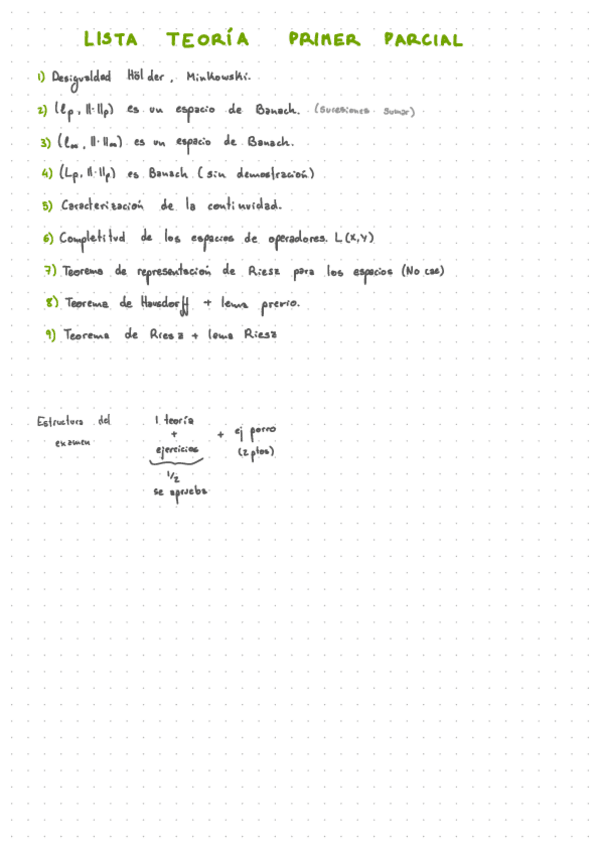 LISTA TEORÍA PRIMER PARCIAL
1) Desigualdad Hölder, Minkowski.
2) (ℓp, ||·||p) es un espacio de Banach. (sucesiones sumar)
3) (ℓ∞, ||·||∞) es un espacio de Banach.
4) (Lp, ||·||p) es Banach (sin demostración)
5) Caracterización de la continuidad.
6) Completitud de los espacios de operadores. L(X,Y)
7) Teorema de representación de Riesz para los espacios (No cae)
8) Teorema de Hausdorff + lema previo.
9) Teorema de Riesz + lema Riesz
Estructura del examen
1 teoría
+
ejercicios
1/2
se aprueba
+ ej porro
(2 ptos)